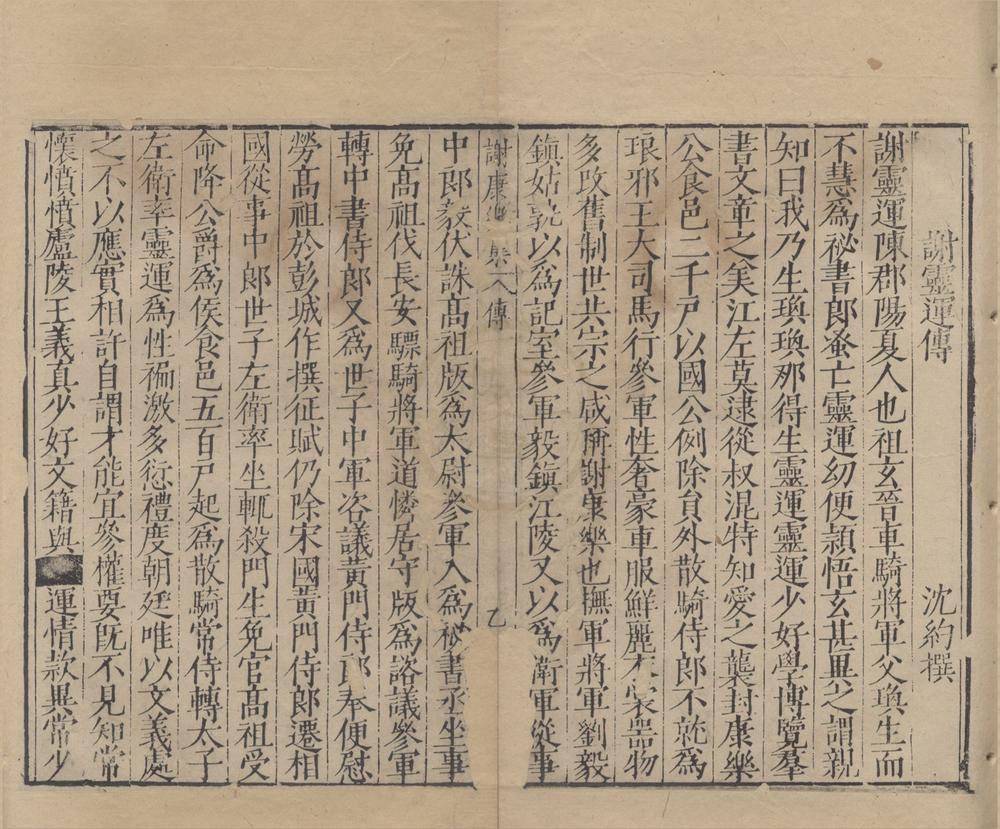 謝靈運傳
沈約撰
謝靈運陳郡陽夏人也祖玄晉車騎將軍父瑍生而
不慧為祕書郎蚤亡靈運幼便頴悟玄甚異之謂親
知曰我乃生瑍瑍那得生靈運靈運少好學博覽羣
書文章之美江左莫逮從叔混特知愛之襲封康樂
公食邑二千戶以國公例除員外散騎侍郎不就為
琅邪王大司馬行參軍性奢豪車服鮮麗衣裳器物
多改舊制世共宗之咸稱謝康樂也撫軍將軍劉毅
鎮姑孰以為記室參軍毅鎮江陵又以為衛軍從事
謝康樂集 傳 乙
中郎毅伏誅高祖版為太尉參軍入為祕書丞坐事
免高祖伐長安驃騎將軍道憐居守版為諮議參軍
轉中書侍郎又為世子中軍咨議黃門侍郎奉使慰
勞高祖於彭城作撰征賦仍除宋國黃門侍郎遷相
國從事中郎世子左衛率坐輒殺門生免官高祖受
命降公爵為侯食邑五百戶起為散騎常侍轉太子
左衛率靈運為性褊激多愆禮度朝廷唯以文義處
之不以應實相許自謂才能宜參權要既不見知常
懷憤憤廬陵王義真少好文籍與 運情款異常少